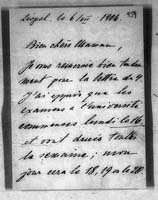 Léopol. le 6 1906.
Bien chère Maman,
Je vous remercie bien tendre-
ment pour la lettre du 4
J'ai appris que les
examens à l'université
commencent lundi le 16
et vont durer toute
la semaine; mon
jour sera le 18, 19 ou le 20